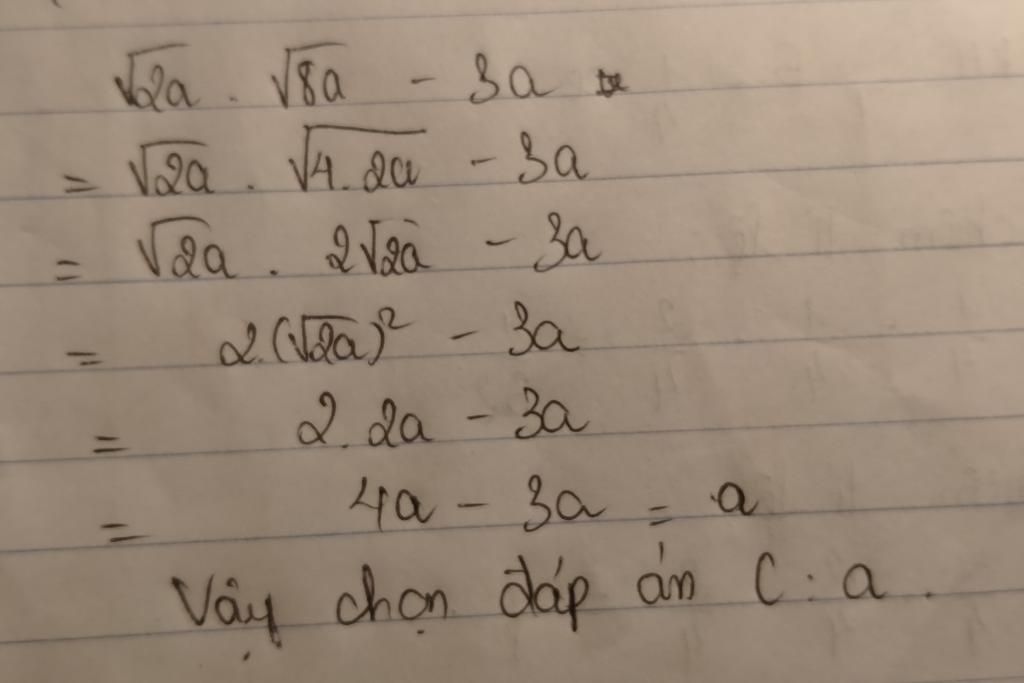 √2a . √8a - 3a
= √2a . √4.2a - 3a
= √2a . 2√2a - 3a
= 2.(√2a)² - 3a
= 2.2a - 3a
= 4a - 3a = a
Vậy chọn đáp án C : a .